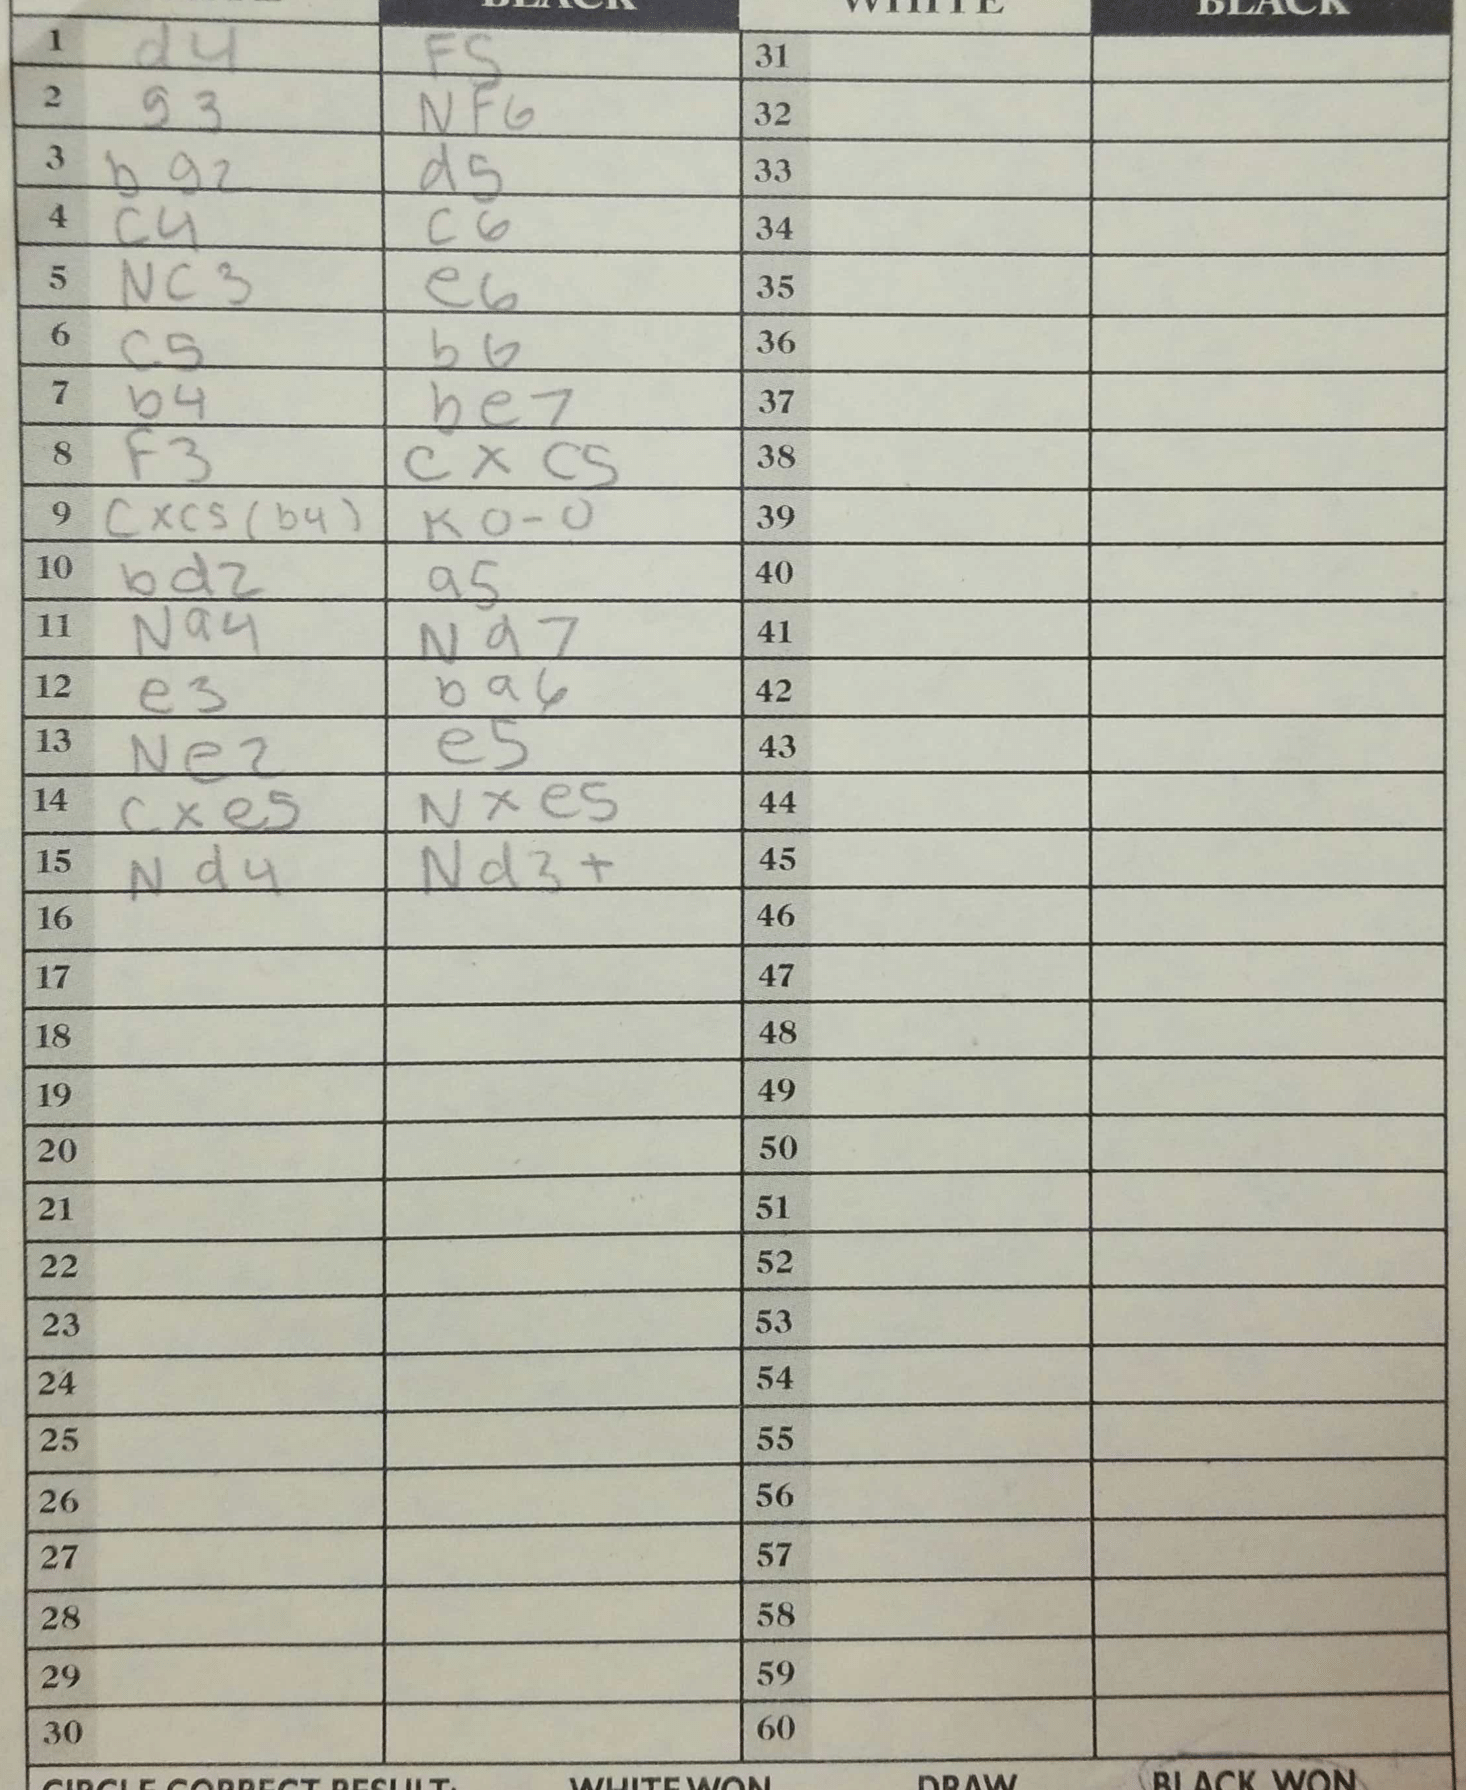 BLACK WHITE BLACK
1 d4 F5 31
2 g3 NF6 32
3 bg2 d5 33
4 C4 C6 34
5 NC3 e6 35
6 C5 b6 36
7 b4 be7 37
8 F3 C x C5 38
9 CxC5 (b4) K O-O 39
10 bd2 a5 40
11 Na4 Nd7 41
12 e3 ba6 42
13 Ne2 e5 43
14 Cxe5 Nxe5 44
15 Nd4 Nd3+ 45
16 46
17 47
18 48
19 49
20 50
21 51
22 52
23 53
24 54
25 55
26 56
27 57
28 58
29 59
30 60
CIRCLE CORRECT RESULT: WHITE WON DRAW BLACK WON